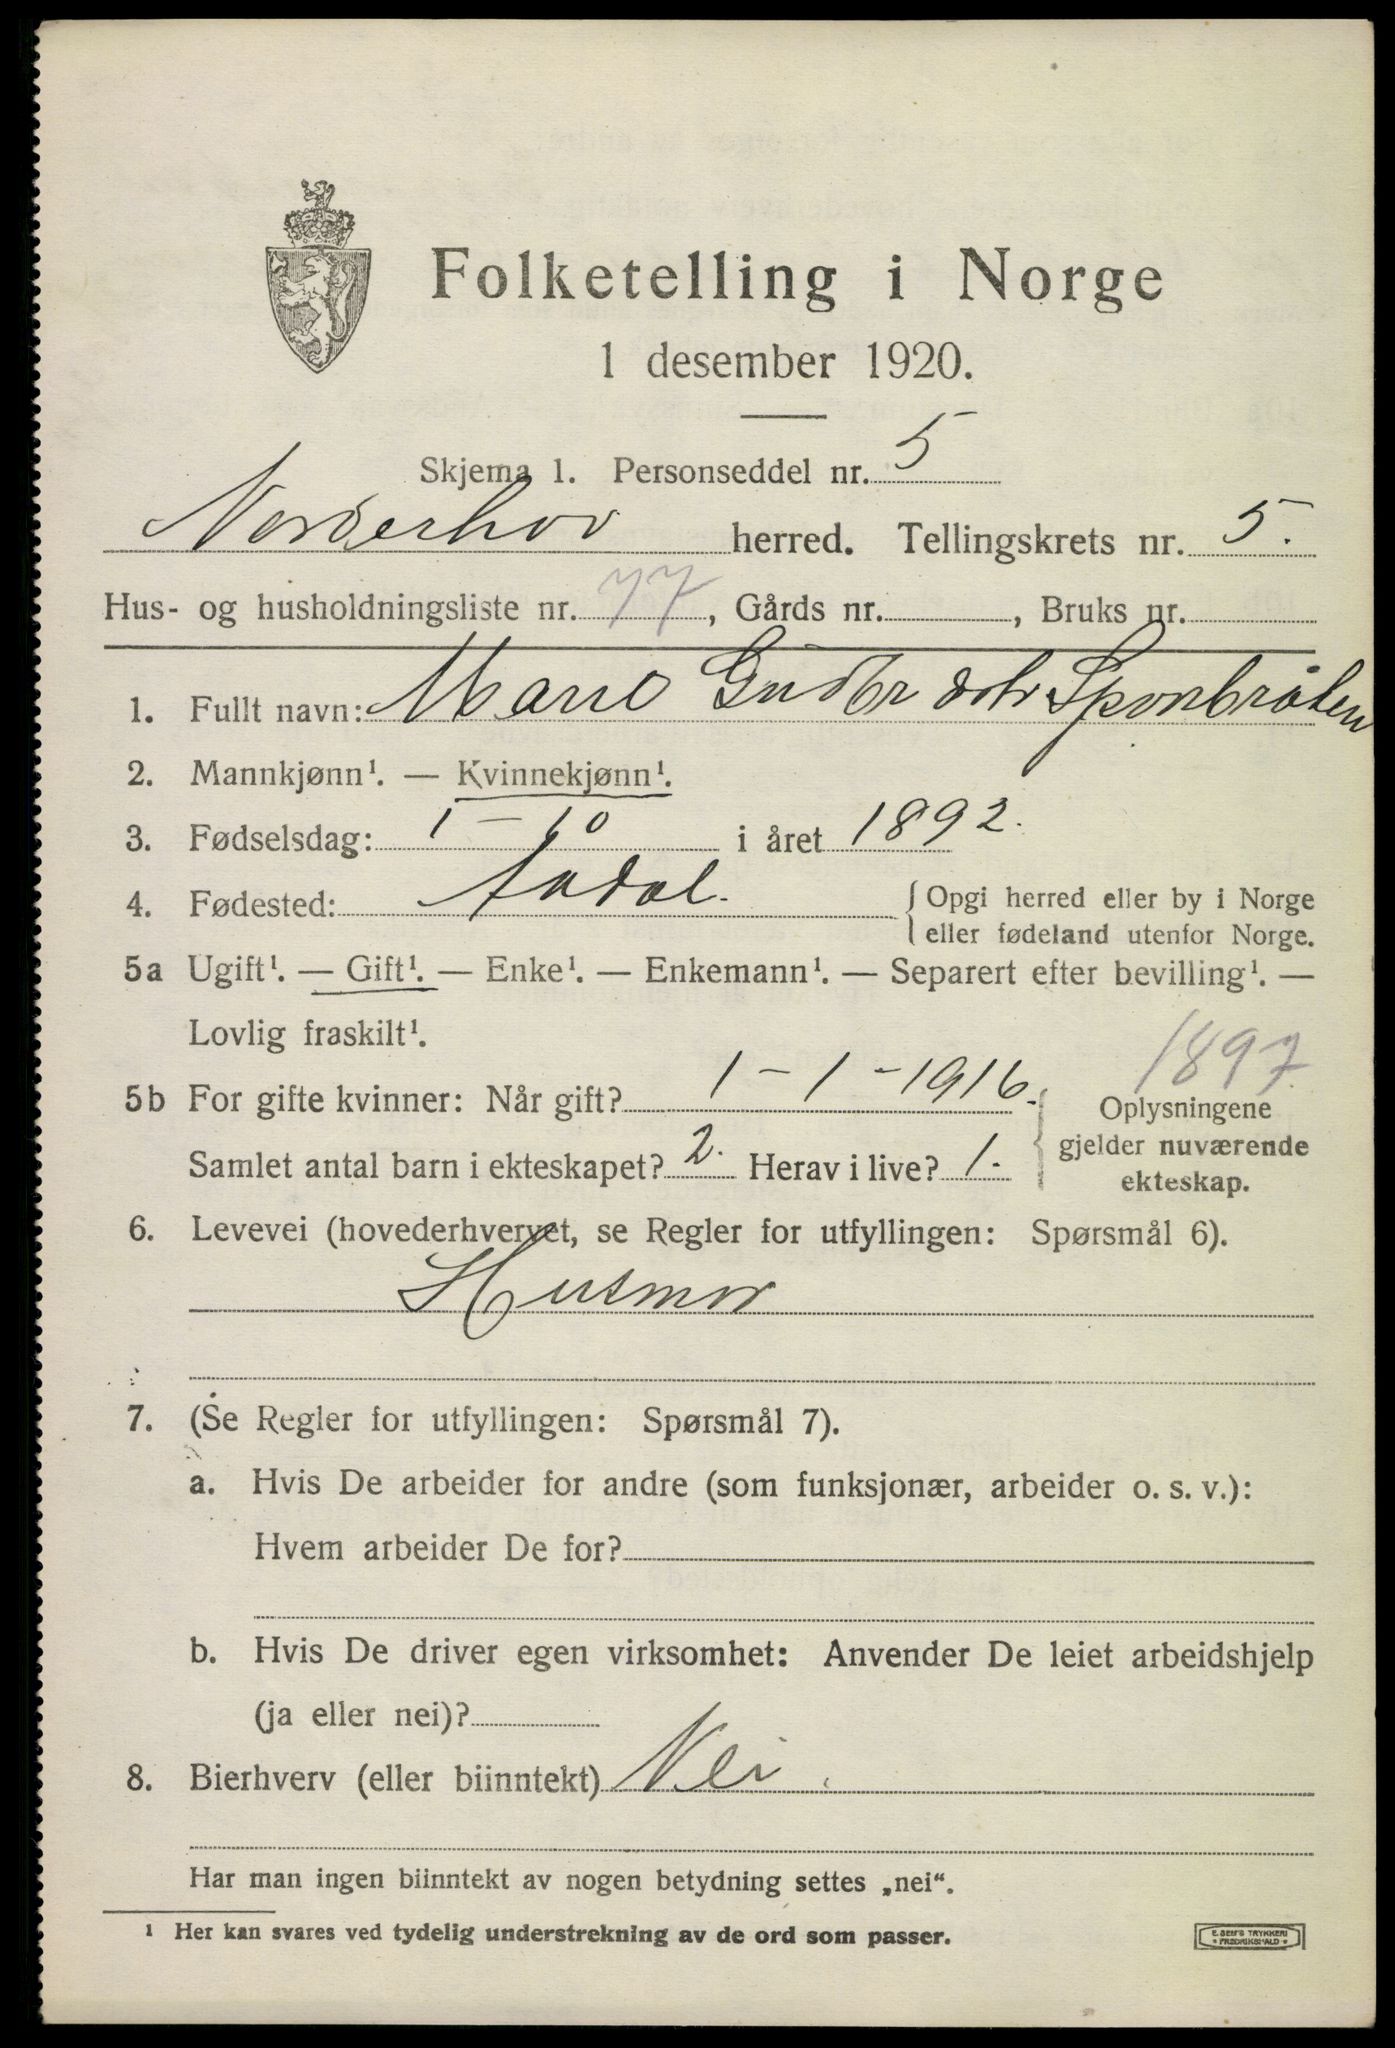 Folketelling i Norge
1 desember 1920.
Skjema 1. Personseddel nr. 5
Norderhov herred. Tellingskrets nr. 5.
Hus- og husholdningsliste nr. 77, Gårds nr. , Bruks nr.
1. Fullt navn: Marie Gudbr dotr Sponbråten
2. Mannkjønn¹. — Kvinnekjønn¹.
3. Fødselsdag: 1 – 10 i året 1892.
4. Fødested: Aadal. { Opgi herred eller by i Norge
eller fødeland utenfor Norge.
5a Ugift¹. — Gift¹. — Enke¹. — Enkemann¹. — Separert efter bevilling¹. —
Lovlig fraskilt¹.
1897
5b For gifte kvinner: Når gift? 1 – 1 – 1916. Oplysningene
Samlet antal barn i ekteskapet? 2. Herav i live? 1. gjelder nuværende
ekteskap.
6. Levevei (hovederhvervet, se Regler for utfyllingen: Spørsmål 6).
Husmor
7. (Se Regler for utfyllingen: Spørsmål 7).
a. Hvis De arbeider for andre (som funksjonær, arbeider o. s. v.):
Hvem arbeider De for?
b. Hvis De driver egen virksomhet: Anvender De leiet arbeidshjelp
(ja eller nei)?
8. Bierhverv (eller biinntekt) Nei.
Har man ingen biinntekt av nogen betydning settes „nei“.
¹ Her kan svares ved tydelig understrekning av de ord som passer.
E. SEM'S TRYKKERI
• FREDRIKSHALD •